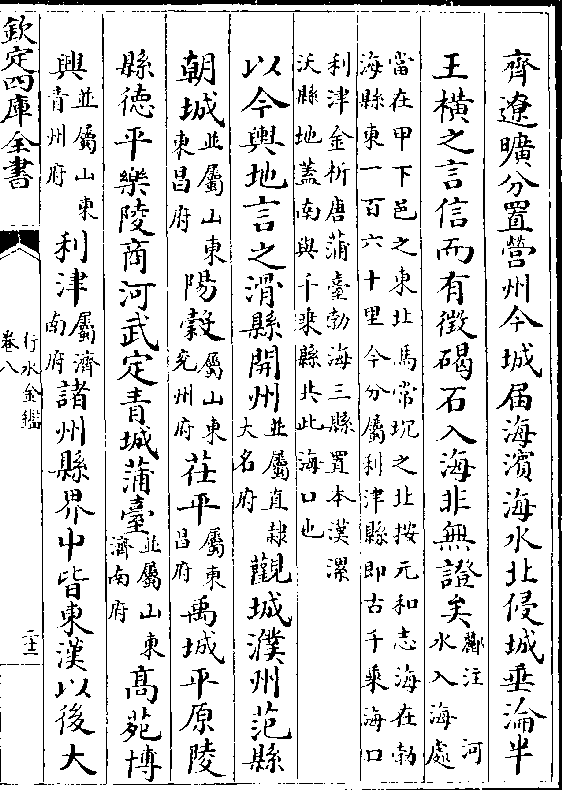 齊遼曠分置營州今城届海濱海水北侵城垂淪半
王橫之言信而有徵碣石入海非無證矣酈注河水入海處
當在甲下邑之東北馬常坈之北按元和志海在勃
海縣東一百六十里今分屬利津縣即古千乘海口
利津金析唐蒲臺勃海三縣置本漢漯
沃縣地蓋南與千乘縣共此海口也
以今輿地言之滑縣開州並屬直隸大名府觀城濮州范縣
朝城並屬山東東昌府陽穀屬山東兖州府茌平屬東昌府禹城平原陵
縣德平樂陵商河武定青城蒲臺並屬山東濟南府高苑博
興並屬山東青州府利津屬濟南府諸州縣界中皆東漢以後大
欽定四庫全書
行水金鑑
卷八